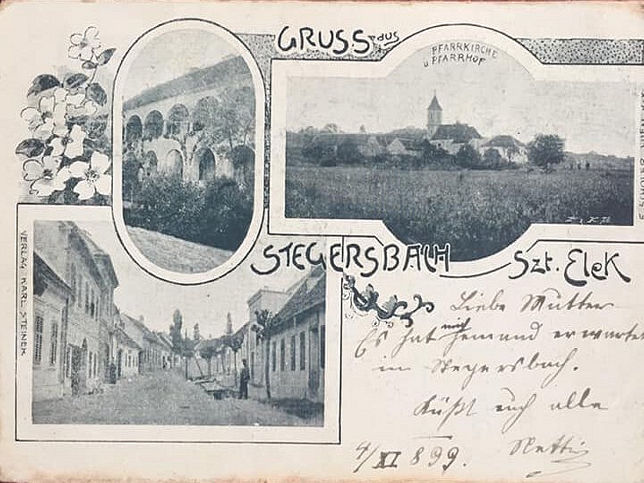 GRUSS aus
PFARRKIRCHE
u. PFARRHOF
STEGERSBACH Szt. EleK
VERLAG KARL STEINER
Liebe Mutter
Es hat mich Jemand erwartet
im Stegersbach.
Küßt euch alle
Netti
4/XI 899.